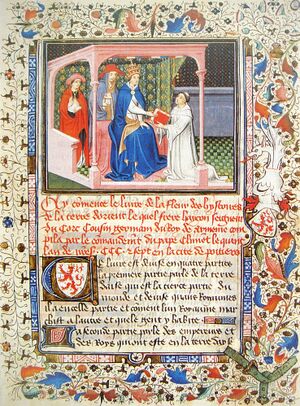 Cy comence le livre de la fleur des hystores
de la terre dorient le quel frere hayton seigneur
du Cort Cousin germain du Roy darmenie com
pila par le comandement du pape Climent le quint
lan de nres. CCC. 7 sept en la cite de poitiers
Ce livre est devise en quatre parties
la premiere partie parle de la terre
dasie qui est la tierce partie du
monde et devise quans royaumes
il a en celle partie et coment lun royaume mar
chist a lautre et quels gens y habite
La seconde partie parle des empereurs et
des Roys qui ont este en la terre dasie